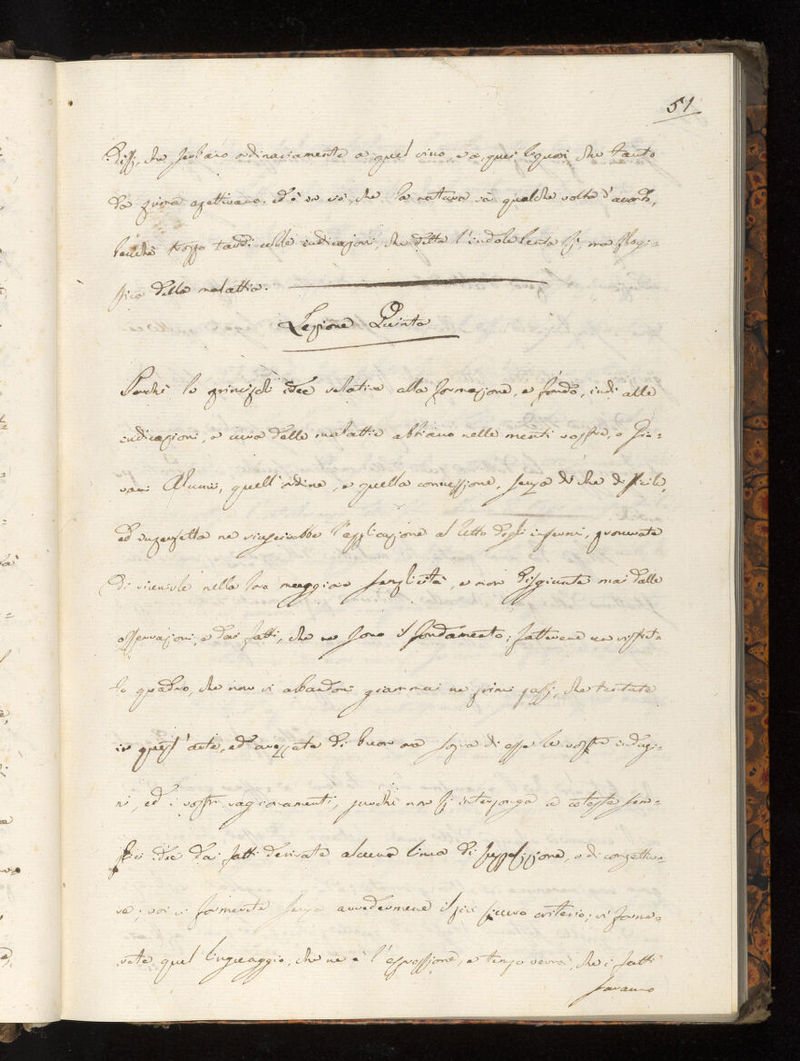 51
dissi, che serbano ordinariamente a quel vino, e a quei liquori, che tanto
da prima apettivano. ed è un ciò, che la natura và qualche volta d'accordo,
benchè troppo tardi colle indicazioni, che detta l'indole lenta sì, ma flogi=
stica della malattia.
Lezione Quinta
Perchè le principali idee relative alla formazione, e fondo, indi alle
indicazioni, e cura delle malattie abbiano nelle menti vostre, o Gio=
vani Alunni, quell'ordine, e quella connessione, senza di che difficile,
ed imperfetta ne riuscirebbe l'applicazione al letto degli infermi, procurate
di vi nella loro maggiore semplicità, e non disgiunte mai dalle
osservazioni, e dai fatti, che ne sono il fondamento; fattevene un ristret=
to quadro, che non vi abbandoni giammai ne primi passi, che tentate
in quest'arte, ed avezzate di buon ora sopra di esse le vostre indagi=
ni, ed i vostri ragionamenti, purchè non si interponga a coteste sem=
plici idee dai fatti derivate alcuna linea di supposizione, o di congettu=
ra; voi vi formerete senza avvedervene il più sicuro criterio; vi forme=
rete quel linguaggio, che ne è l'espressione, e tempo verrà, che i fatti
saranno